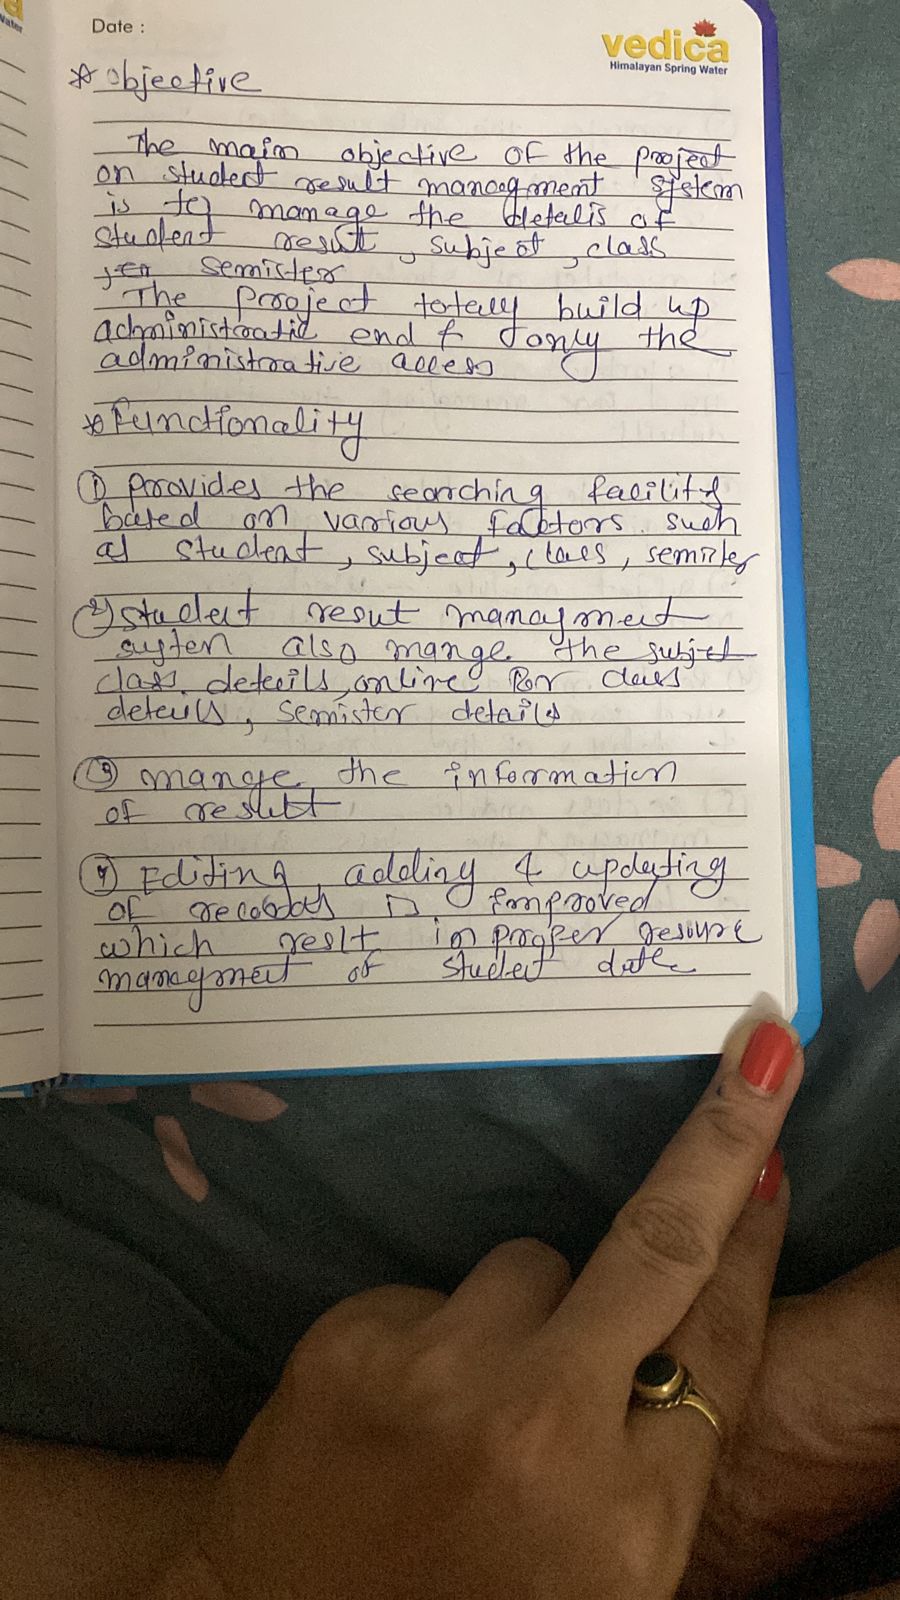 Date :
vedica
Himalayan Spring Water
* Objective
The main objective OF the project
on student result managment system
is to manage the detalis of
student result, subject, class
semister
The project totelly build up
administratil end & only the
administrative access
* Functionality
① provides the searching facility
based on various factors such
as student, subject, class, semister
② student resut managment
system also mange the subject
class details, online for class
details, semister details
③ mange the information
of result
④ Editing, adding & updating
of records is improved
which reslt in proper resoure
managment of student date